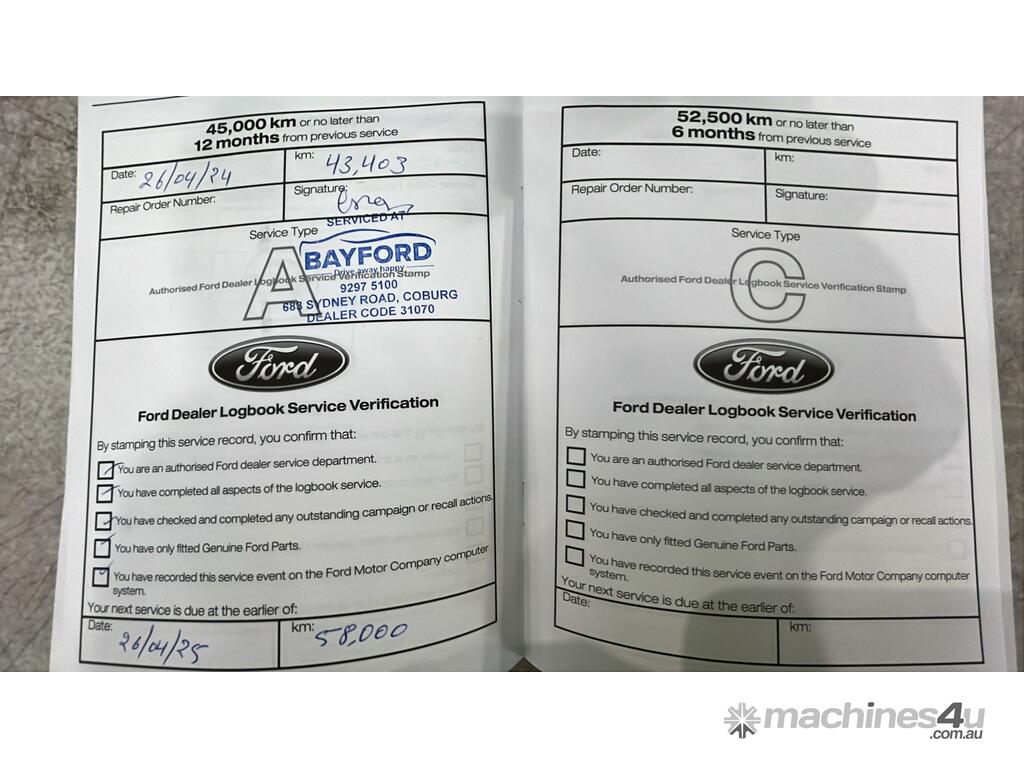 45,000 km or no later than
12 months from previous service
Date: 26/04/24
km: 43,403
Repair Order Number:
Signature:
SERVICED AT
Service Type
BAYFORD
Drive away happy
A
Authorised Ford Dealer Logbook Service Verification Stamp
9297 5100
683 SYDNEY ROAD, COBURG
DEALER CODE 31070
Ford
Ford Dealer Logbook Service Verification
By stamping this service record, you confirm that:
You are an authorised Ford dealer service department.
You have completed all aspects of the logbook service.
You have checked and completed any outstanding campaign or recall actions.
You have only fitted Genuine Ford Parts.
You have recorded this service event on the Ford Motor Company computer
system.
Your next service is due at the earlier of:
Date: 26/04/25
km: 58,000
52,500 km or no later than
6 months from previous service
Date:
km:
Repair Order Number:
Signature:
Service Type
C
Authorised Ford Dealer Logbook Service Verification Stamp
Ford
Ford Dealer Logbook Service Verification
By stamping this service record, you confirm that:
You are an authorised Ford dealer service department.
You have completed all aspects of the logbook service.
You have checked and completed any outstanding campaign or recall actions.
You have only fitted Genuine Ford Parts.
You have recorded this service event on the Ford Motor Company computer
system.
Your next service is due at the earlier of:
Date:
km:
machines4u
.com.au